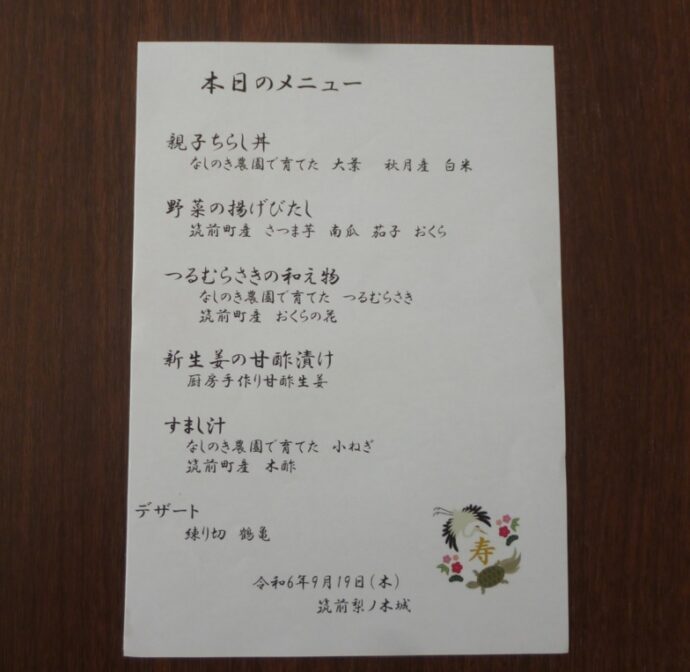 本日のメニュー
親子ちらし丼
なしのき農園で育てた 大葉 秋月産 白米
野菜の揚げびたし
筑前町産 さつま芋 南瓜 茄子 おくら
つるむらさきの和え物
なしのき農園で育てた つるむらさき
筑前町産 おくらの花
新生姜の甘酢漬け
厨房手作り甘酢生姜
すまし汁
なしのき農園で育てた 小ねぎ
筑前町産 木酢
デザート
練り切 鶴亀
寿
令和6年9月19日(木)
筑前梨ノ木城